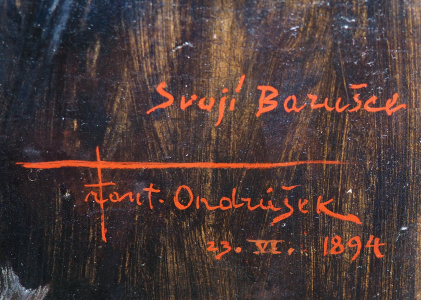 Svojí Barušce
Font. Ondrúšek
23. VI. 1894